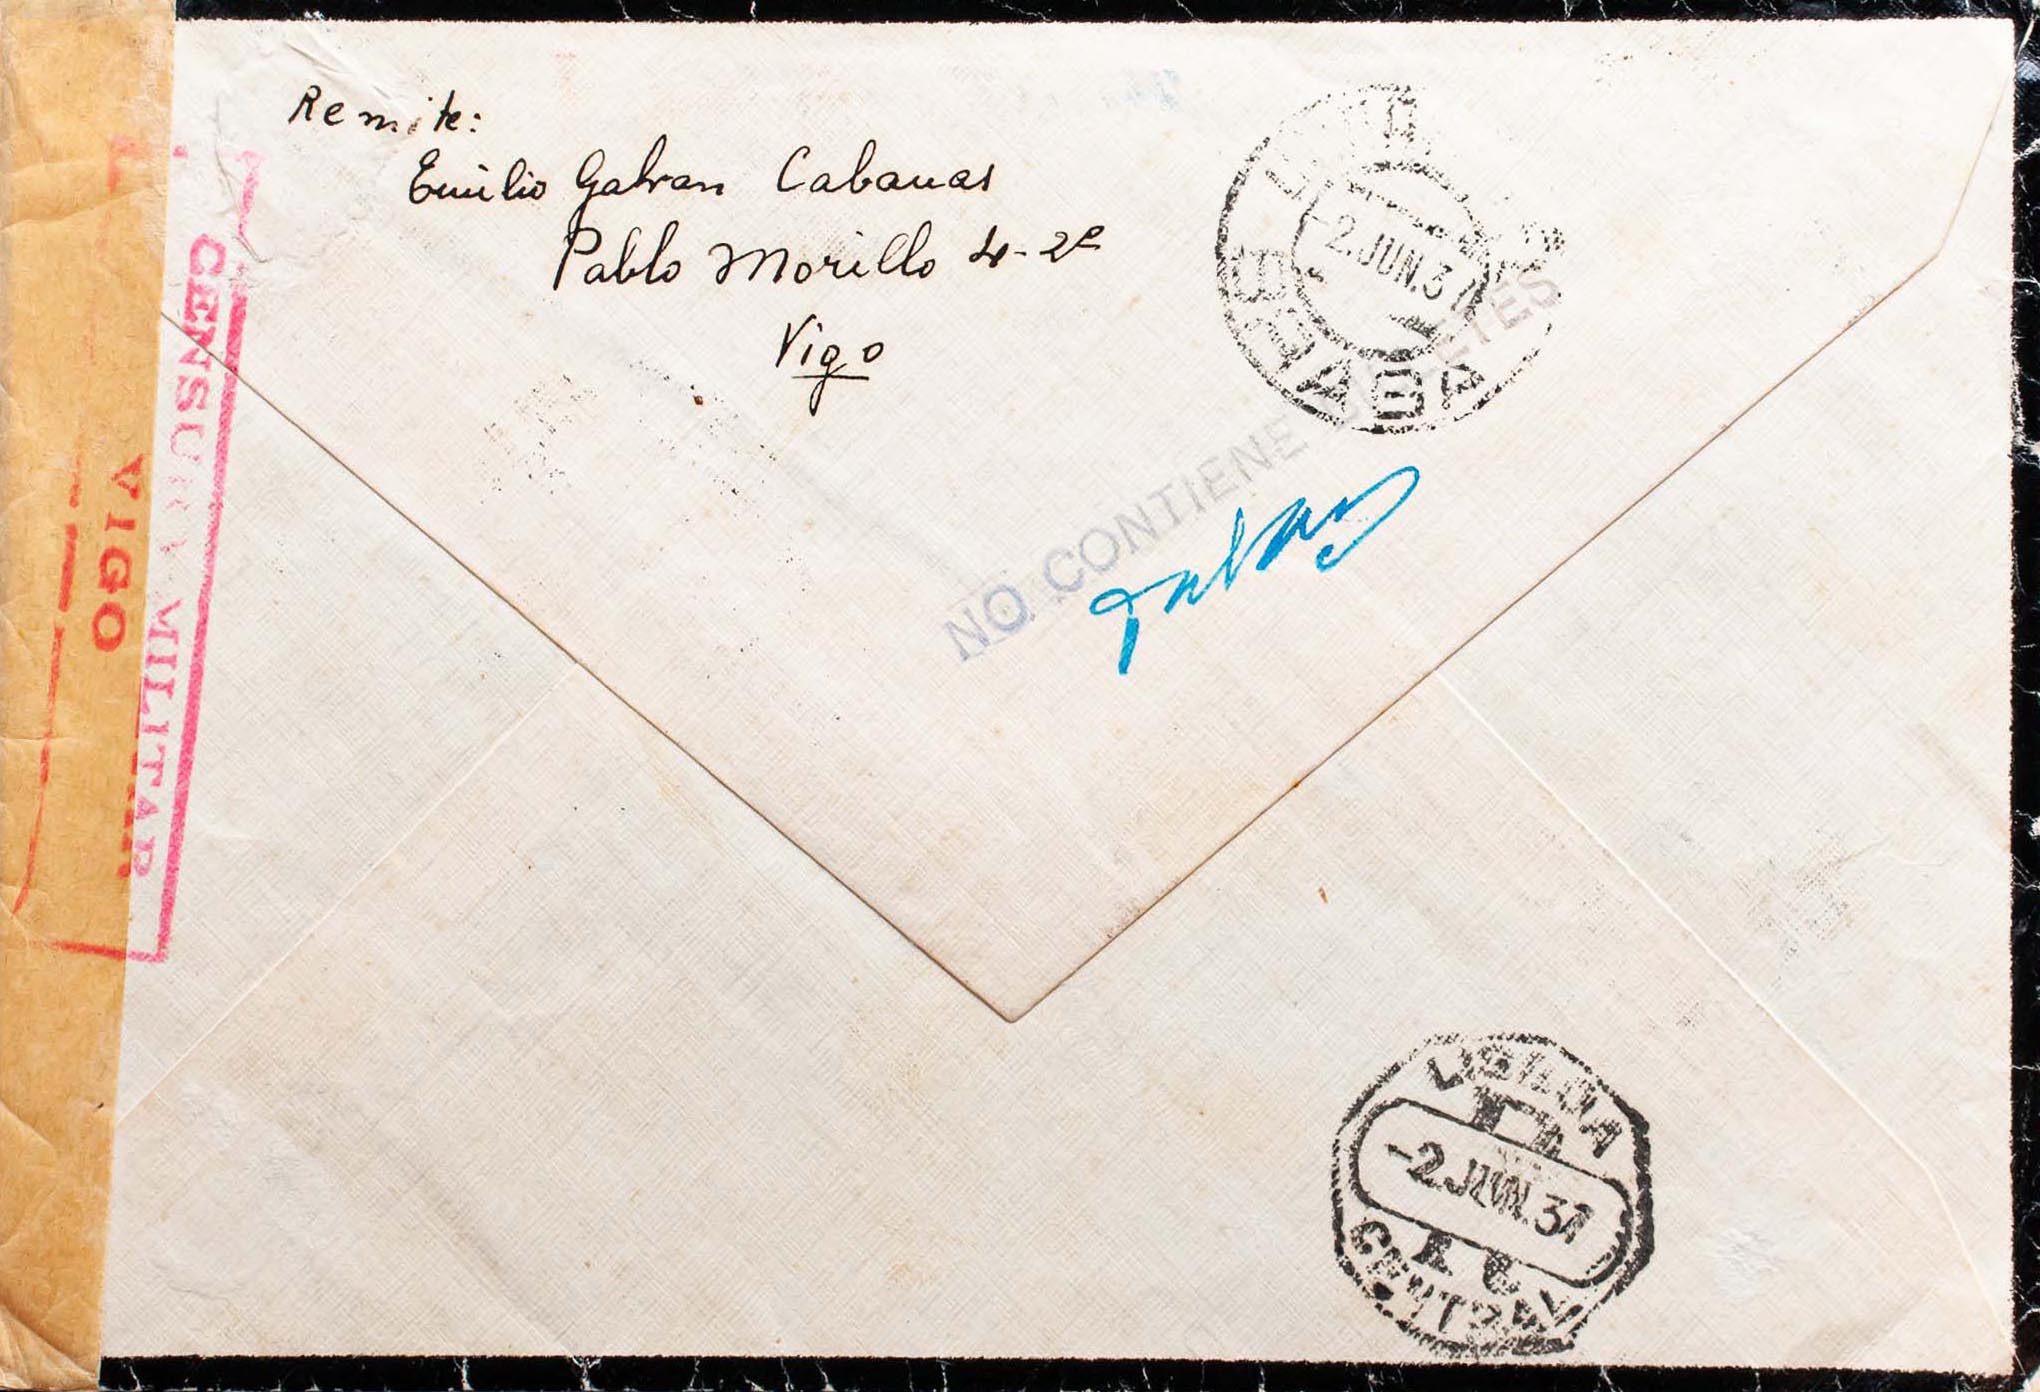 Remite:
Emilio Galvan Cabanas
Pablo Morillo 4-2º
Vigo
CENSURA MILITAR
VIGO
-2.JUN.37
BRAGA
NO CONTIENE BILLETES
LISBOA
-2.JUN.37
CENTRAL